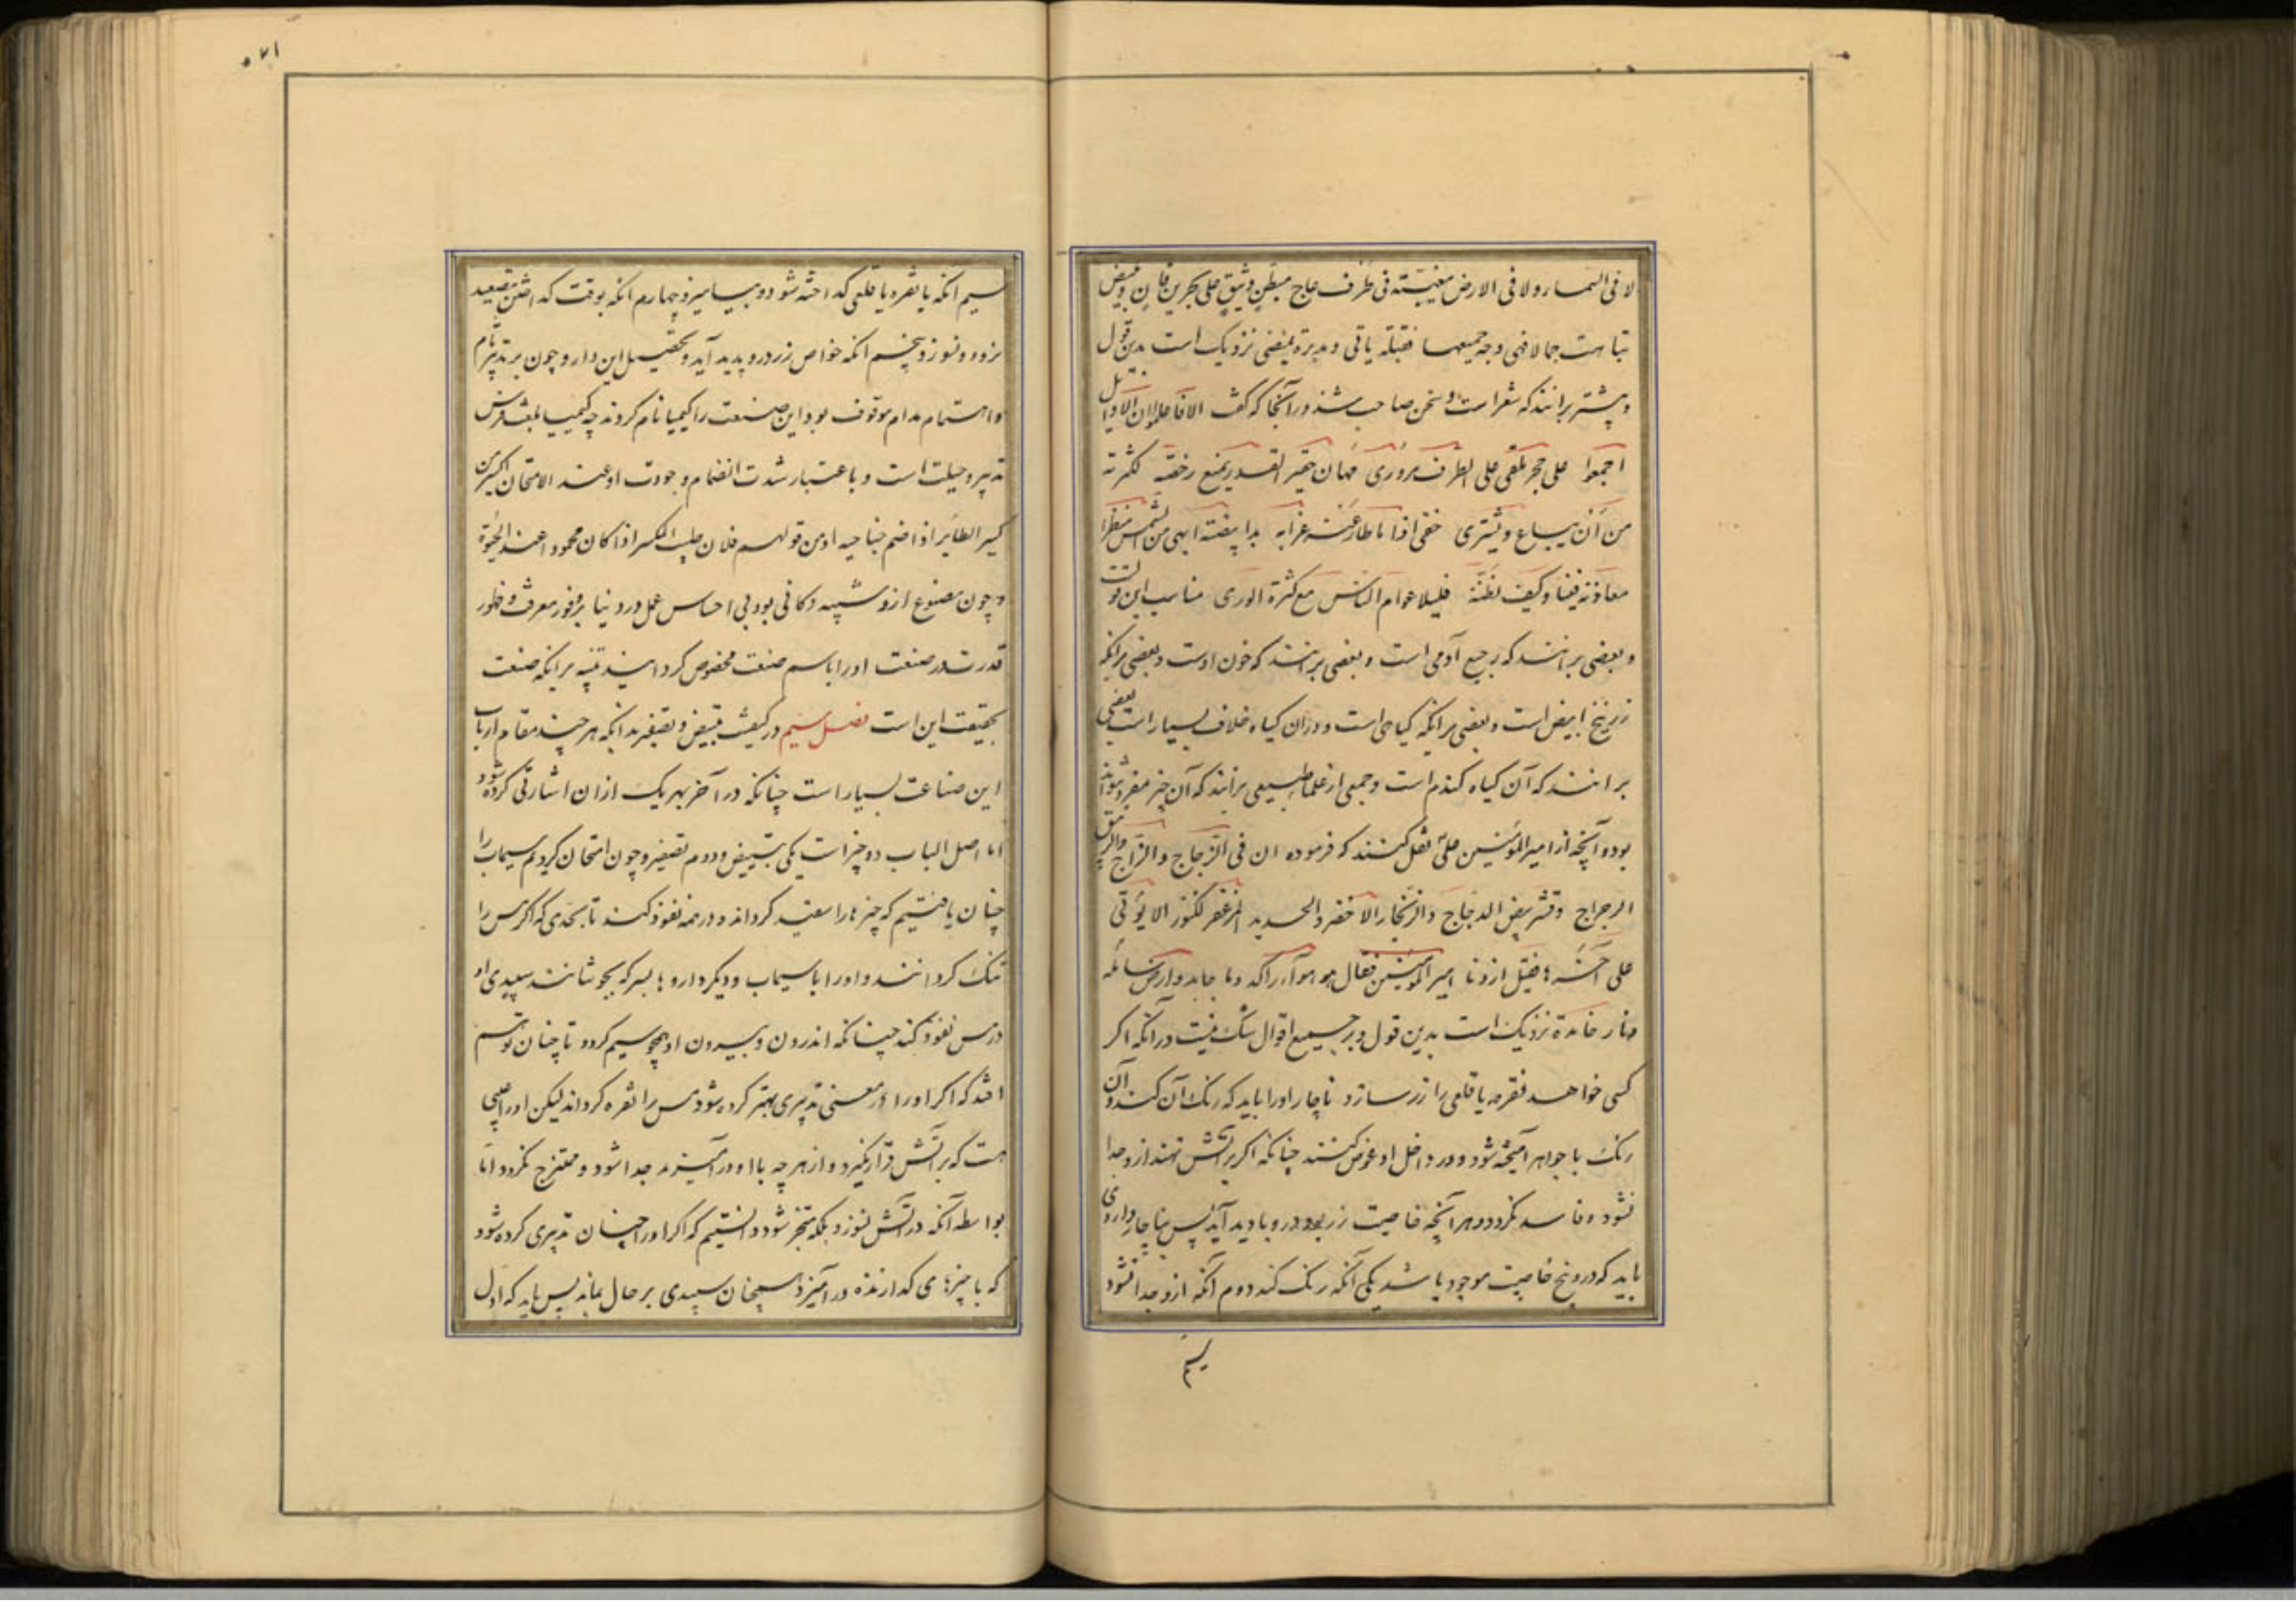 لا فی السماء ولا فی الارض مغیبته فی ظرف عاج مبطن وثیق علی بحرین
وبیشتر برانند که شعر است و سخن صاحب شذور آنجا که گفت الا فاعلموا ان الاوایل
اجمعوا علی حجر ملقی علی الطرف مزدری مهان حقیر القدر یمنع رخصه لکثرته
من أن یباع ویشتری خفی اذا ما طار عنه غرابه بدا بیضة ابهی من الشمس منظرا
معادنه فینا وکیف نظنه قلیلا عوام الناس مع کثرة الوری مناسب این قولست
و بعضی برانند که رجیع آدمی است و بعضی برانند که خون اوست و بعضی برانکه
زرنیخ ابیض است و بعضی برانکه گیاهی است و در آن گیاه خلاف بسیار است بعضی
برانند که آن گیاه گندم است و جمعی از علماء طبیعی برانند که آن چیز مفرد
بود و آنچه از امیر المؤمنین علی نقل کنند که فرموده ان فی الزجاج والزاج والزیبق
الرجراج وقشر بیض الدجاج والزنجار الاخضر والحدید المزعفر لکنوز الا یؤتی
علی آخره فقیل زدنا یا امیر المؤمنین فقال هو هواء راکد وماء جامد وارض سائله
ونار خامدة نزدیک است بدین قول و بر جمیع اقوال شک نیست در آنکه اگر
کسی خواهد نقره یا قلعی را زر سازد ناچار او را باید که رنک آن کند و آن
رنک با جواهر آمیخته شود و در داخل او غوص کند چنانکه اگر بر آتش نهند ازو جدا
نشود و فاسد نکردد و هر آنچه خاصیت زر بود درو بادید آید پس بناچار داروی
باید که درو پنج خاصیت موجود باشد یکی آنکه رنک کند دوم آنکه ازو جدا نشود
سیم
۵۷۱
سیم آنکه با نقره یا قلعی گداخته شود و بیامیزد چهارم آنکه بوقت گداختن تصعید
نزود و نسوزد پنجم آنکه خواص زر درو پدید آید و تحصیل این دارو چون بر تدبیر تام
و اهتمام مدام موقوف بود این صنعت را کیمیا نام کردند چه کیمیا بلغت فرس
تدبیر و حیلت است و باعتبار شدت انضمام و جودت او عند الامتحان اکسیر من
کسر الطائر اذا ضم جناحیه او من قولهم فلان طیب المکسر اذا کان محمودا عند الخبرة
و چون مصنوع ازو شبیه و کافی بود بی احساس عمل در دنیا بر وفور معرفت و ظهور
قدرت در صنعت او را باسم صنعت مخصوص کردانیدند تنبیه برانکه صنعت
بحقیقت این است فصل سیم در کیفیت تبییض و تصفیر بدانکه هر چند مقام ارباب
این صناعت بسیار است چنانکه در آخر بهر یک ازان اشارتی کرده شود
اما اصل الباب دو چیز است یکی تبییض و دوم تصفیر و چون امتحان کردیم سیماب را
چنان یافتیم که چیزها را سفید کرداند و در همه نفوذ کند تا بحدی که اگر مس را
تنک کردانند و او را با سیماب و دیگر داروها بسرکه بجوشانند سپیدی او
در مس نفوذ کند چنانکه اندرون و بیرون او همچو سیم کردد تا چنان توهم
افتد که اگر او را در معنی تدبیری بهتر کرده شود مس را نقره کرداند لیکن او را عیبی
هست که بر آتش قرار نکیرد و از هر چه با او درآمیزد جدا شود و ممتزج نکردد اما
بواسطه آنکه در آتش نسوزد بلکه متبخر شود دانستیم که اگر او را چنان تدبیری کرده شود
که با چیزهای گدازنده درآمیزد همچنان سپیدی بر حال بماند پس باید که اول